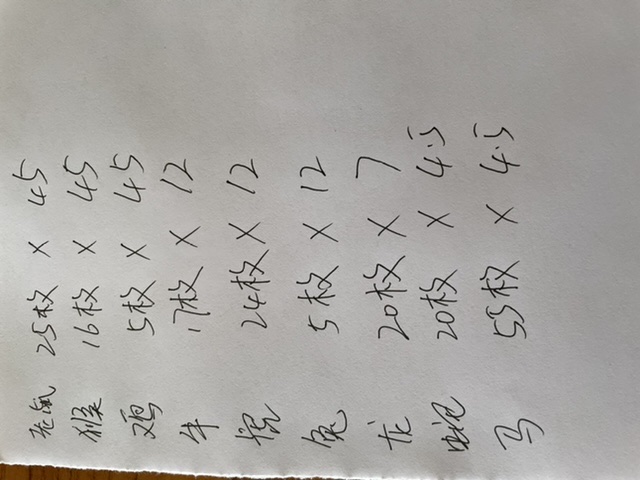 老鼠 25枚 × 45
猴 16枚 × 45
鸡 5枚 × 45
牛 17枚 × 12
猪 24枚 × 12
兔 5枚 × 12
龙 20枚 × 7
蛇 20枚 × 4.5
马 55枚 × 4.5